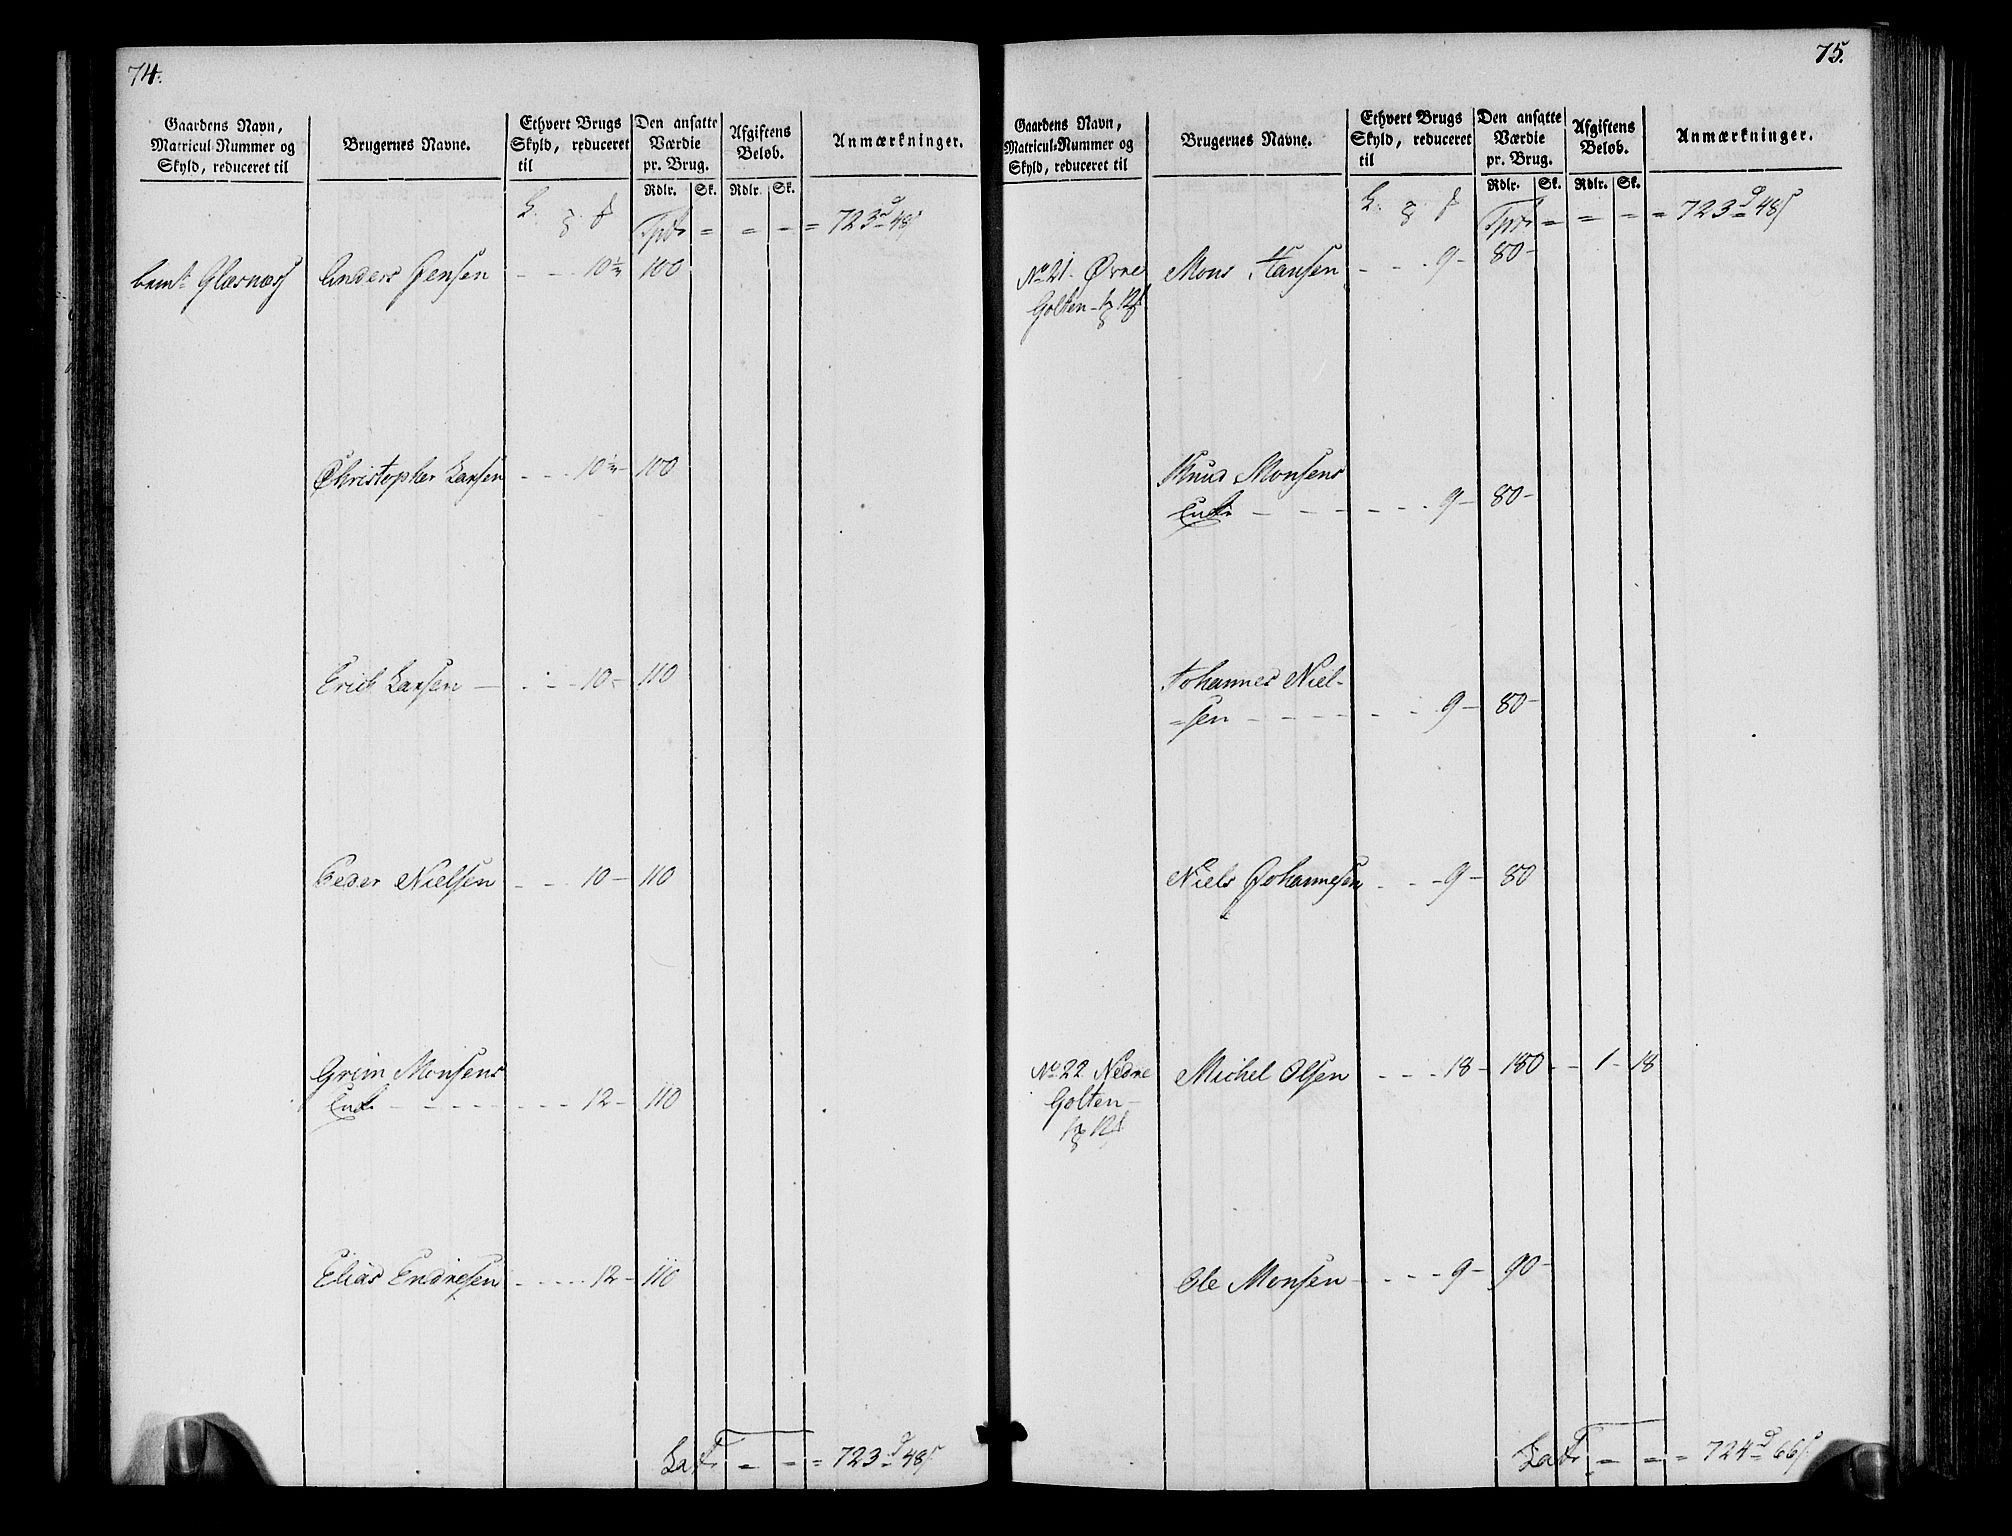 74.
Gaardens Navn, Matricul-Nummer og Skyld, reduceret til
Brugernes Navne.
Ethvert Brugs Skyld, reduceret til
Den ansatte Værdie pr. Brug.
Afgiftens Beløb.
Anmærkninger.
Rdlr. Sk. Rdlr. Sk.
= = - = 723 d 48 s
Glæsnæss Anders Jensen - - - 10½ 100
Christopher Larsen - - - 10½ - 100
Erich Larsen - - - - 10 - 110
Peder Nielsen - - - 10 - 110
Grim Monsens
Enke - - - - - - - 12 - 110
Elias Endresen - - - - - 12 - 110
Lat. = = = 723 d 48 s
75.
Gaardens Navn, Matricul-Nummer og Skyld, reduceret til
Brugernes Navne.
Ethvert Brugs Skyld, reduceret til
Den ansatte Værdie pr. Brug.
Afgiftens Beløb.
Anmærkninger.
Rdlr. Sk. Rdlr. Sk.
= = = = 723 d 48 s
No 21. Øvre Mons Hansen - - - 9 - 80 -
Golten - 1 12
Knud Monsens
Enke - - - - - - - 9 - 80 -
Johannes Niel-
=sen - - - - - - - 9 - 80 -
Niels Johannesen - - - 9 - 80
No 22 Nedre Michel Olsen - - - 18 - 180 - - 1 - 18
Golten -
1 12
Ole Monsen - - - - 9 - 90 -
Lat. = = = 724 d 66 s